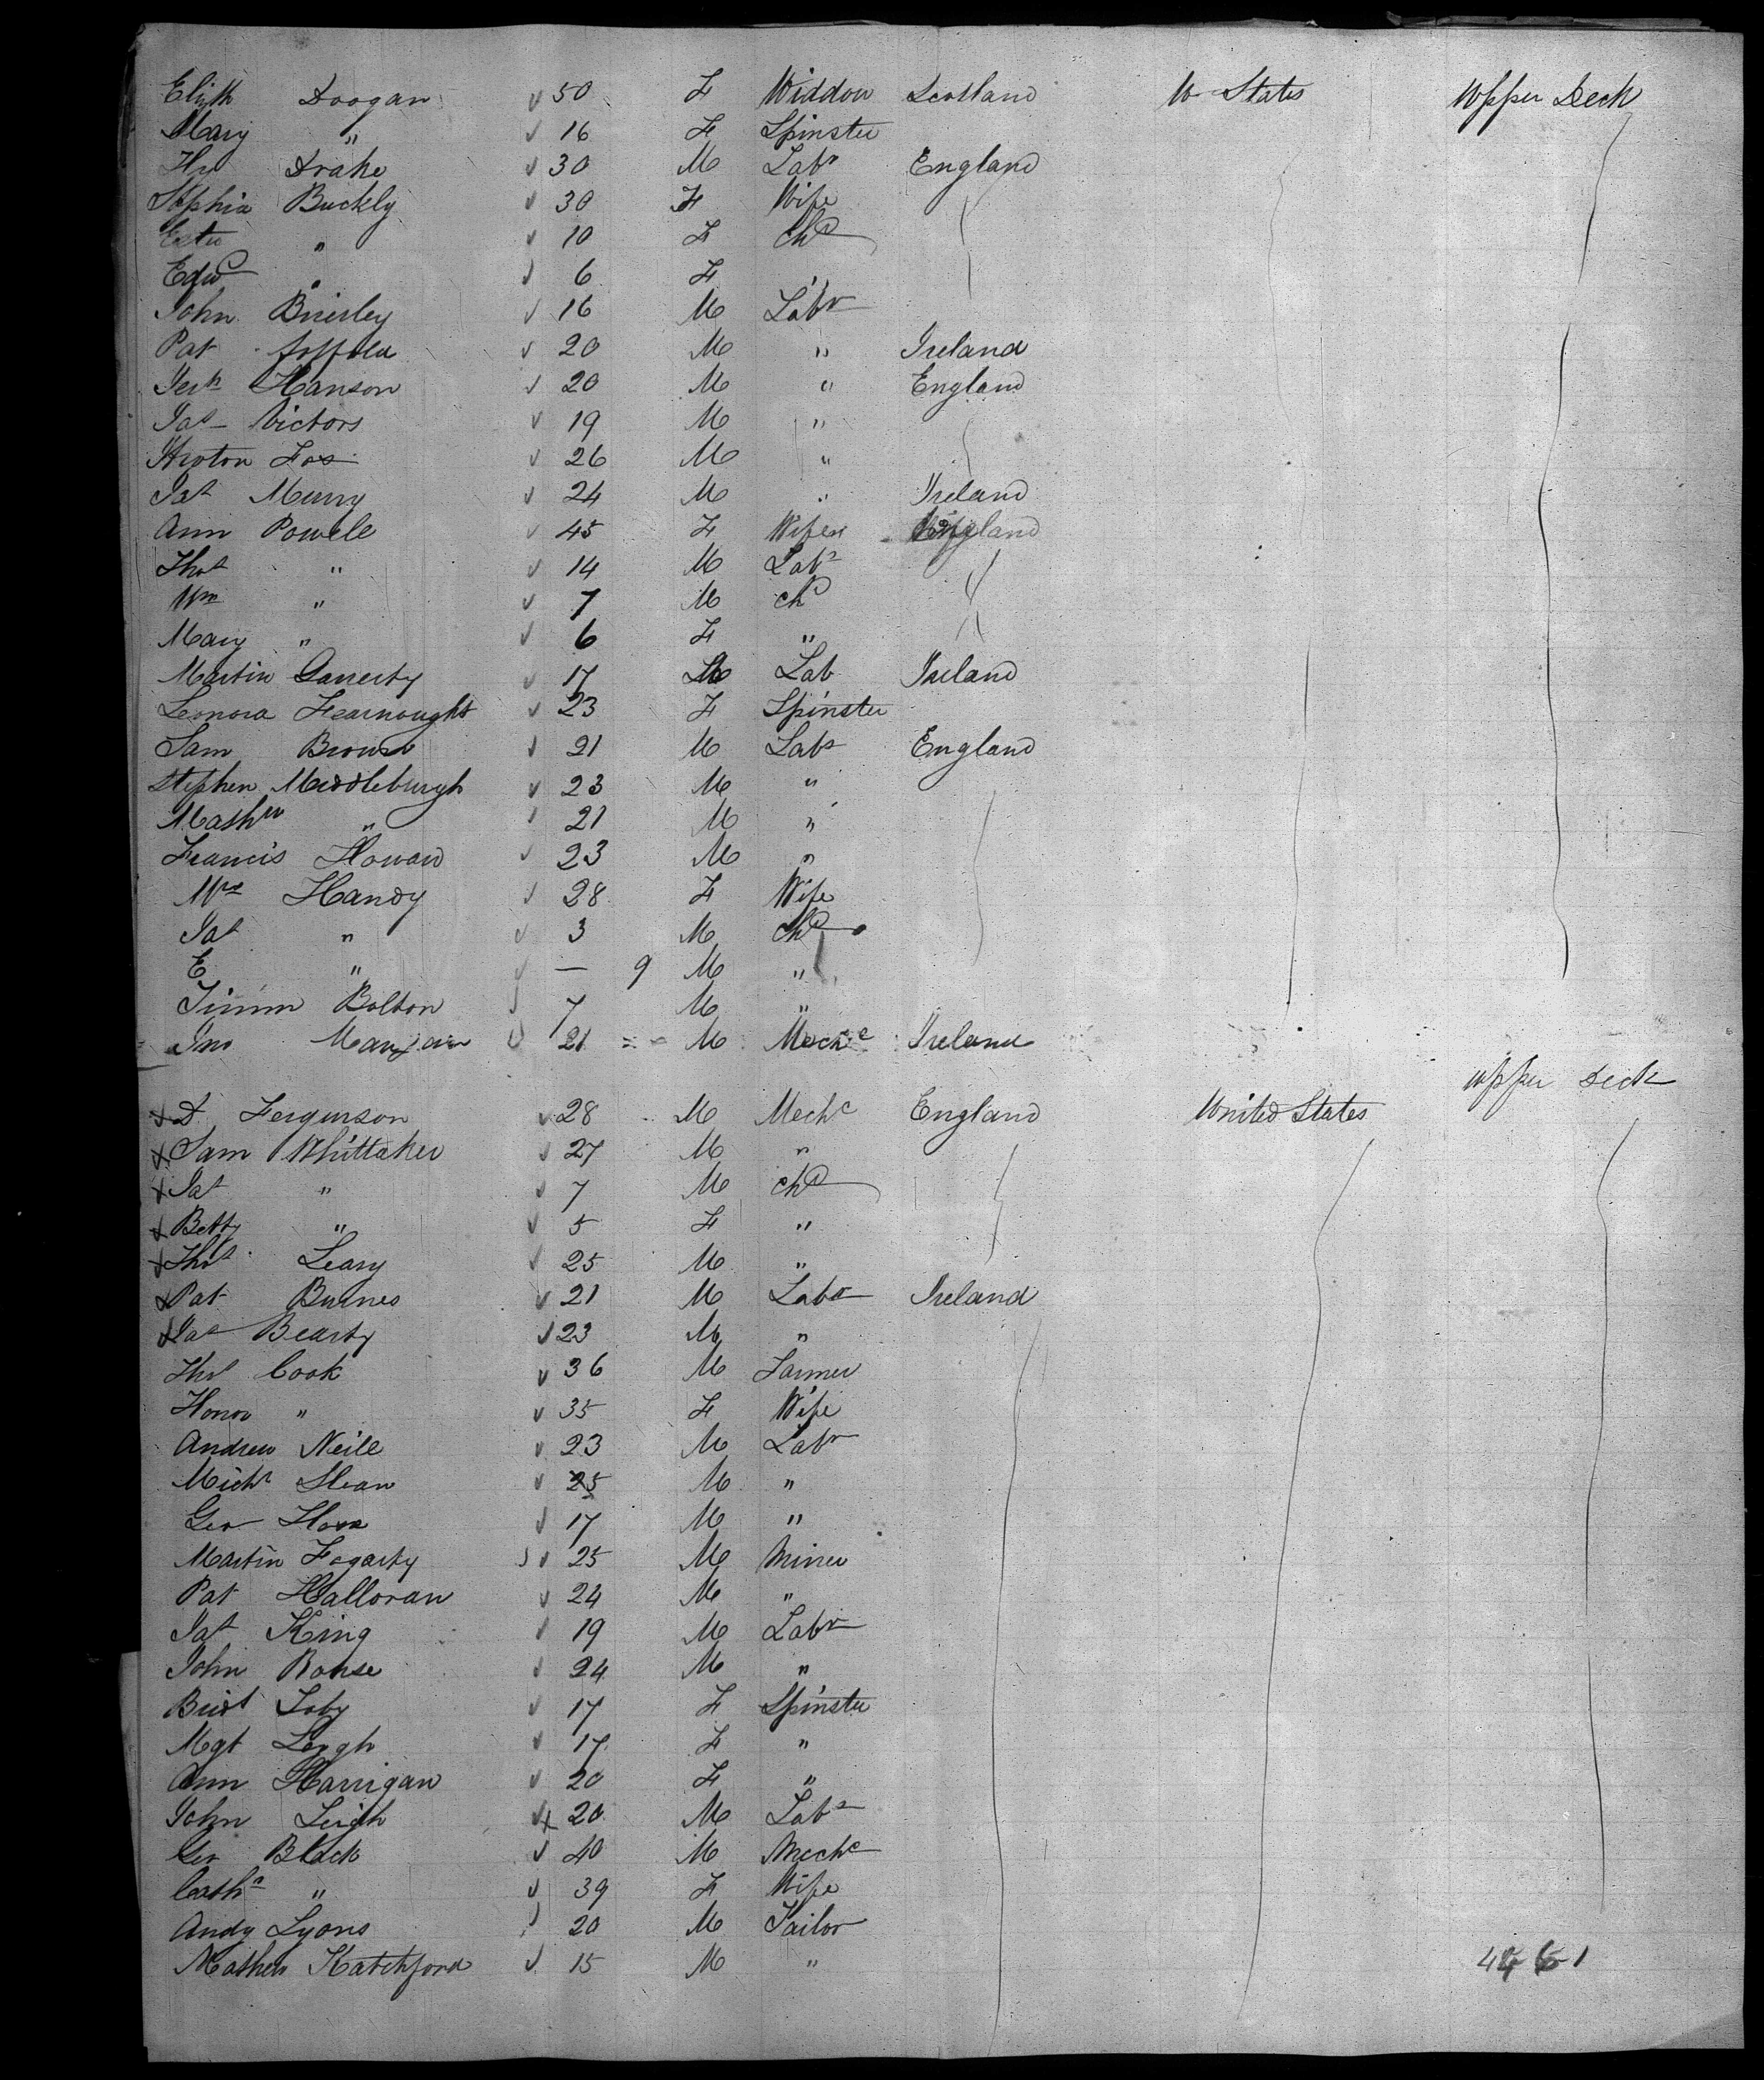 Elizth Doogan √ 50 F Widdow Scotland U States Upper Deck
Mary " √ 16 F Spinster
Hy Drake √ 30 M Labr England
Sophia Buckly √ 30 F Wife
Ester " √ 10 F Chd
Edwd " √ 6 F "
John Brierley √ 16 M Labr
Pat √ 20 M " Ireland
Hanson √ 20 M " England
Jas Victors √ 19 M "
Fox √ 26 M "
Pat Murry √ 24 M " Ireland
Ann Powell √ 45 F Wife England
Thos " √ 14 M Labr
Wm " √ 7 M chd
Mary " √ 6 F "
Martin Garrerty √ 17 M Lab Ireland
Leonora Fearnought √ 23 F Spinster
Sam Brown √ 21 M Labr England
Stephen Middleburgh √ 23 M "
Mathw " √ 21 M "
Francis Howard √ 23 M "
Mrs Handy √ 28 F Wife
Jas " √ 3 M Chd
E " √ — 9 M "
Timm Bolton √ 7 M "
Jno √ 21 M Mechc Ireland
Upper Deck
x D Fergurson √ 28 M Mechc England United States
x Sam Whittaker √ 27 M "
x Jas " √ 7 M chd
x Betty " √ 5 F "
x Thos Leary √ 25 M "
x Pat Burnes √ 21 M Labr Ireland
x Jas Bearty √ 23 M "
Thos Cook √ 36 M Farmer
Honor " √ 35 F Wife
Andrew Neill √ 23 M Labr
Michl Slean √ 25 M "
Geo √ 17 M "
Martin Fogarty √ 25 M Miner
Pat Halloran √ 24 M "
Jas King √ 19 M Labr
John Rouse √ 24 M "
Bridt Toby √ 17 F Spinster
Mgt Leygh √ 17 F "
Ann Harrigan √ 20 F "
John Leigh √ x 20 M Labr
Geo Black √ 40 M Mechc
Cathn " √ 39 F Wife
Andy Lyons √ 20 M Tailor
Mathew Katchford √ 15 M "